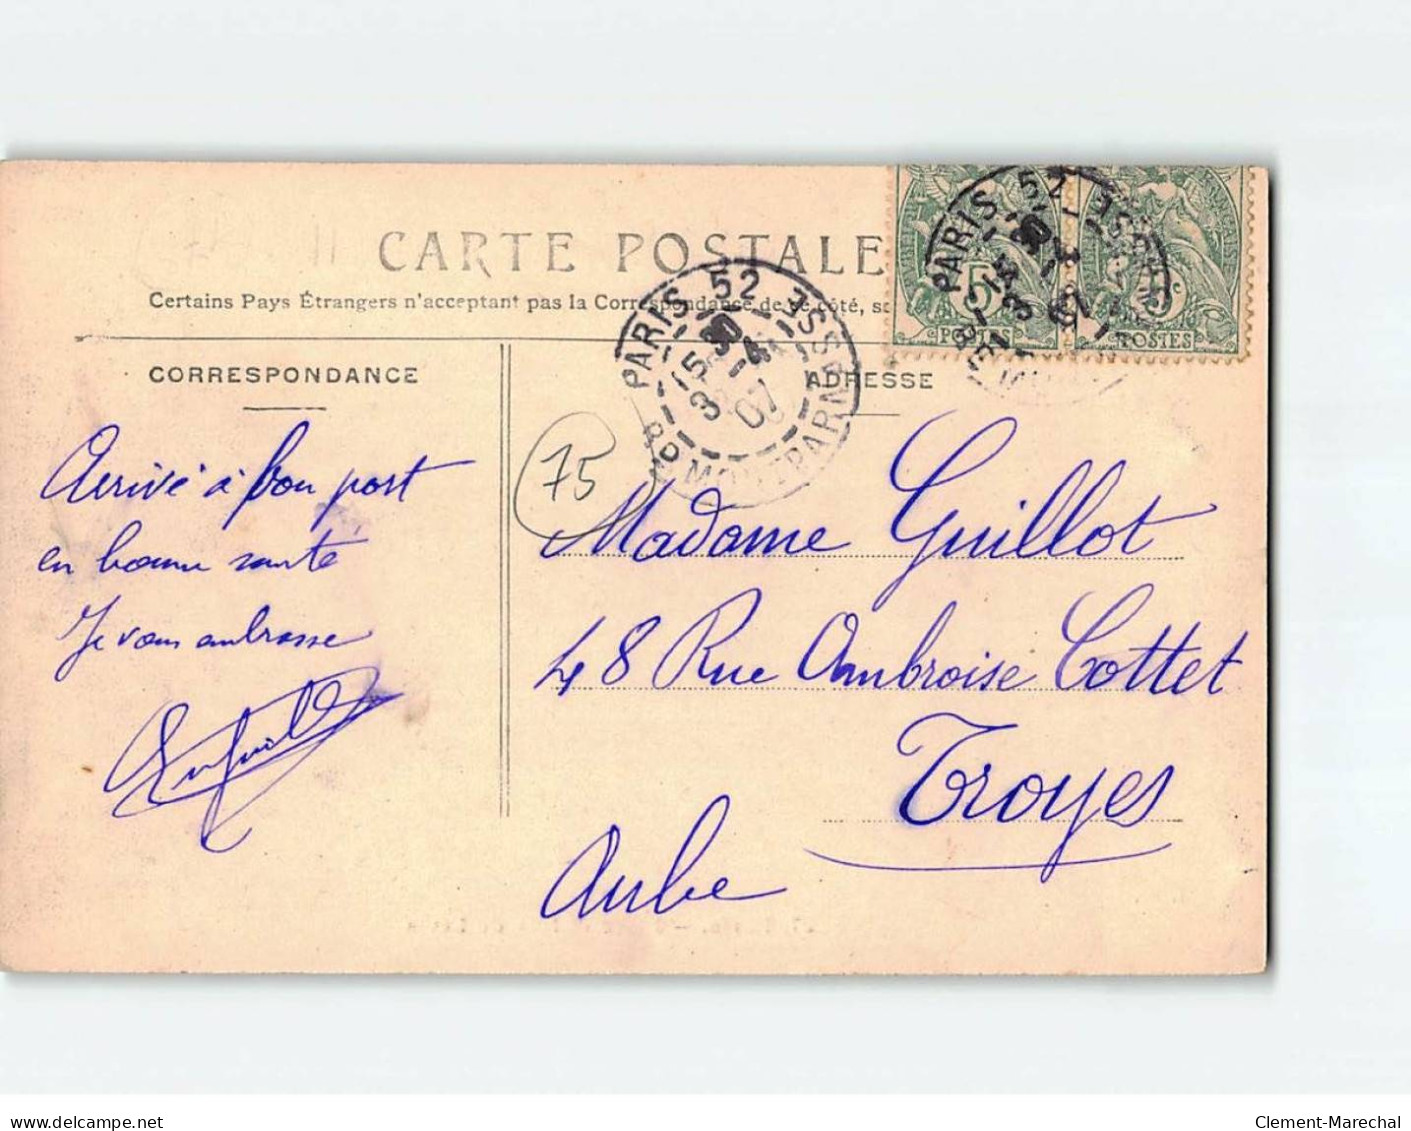 CARTE POSTALE
Certains Pays Étrangers n'acceptant pas la Correspondance de ce côté, s
CORRESPONDANCE
ADRESSE
PARIS 52
15 30
3 - 4
07
PARIS 52
15 30
3 - 4
07
5
POSTES
5c
POSTES
75
Arrivé à bon port
en bonne santé
Je vous embrasse
Madame Guillot
48 Rue Ambroise Cottet
Troyes
Aube
delcampe.net
Clement-Marechal